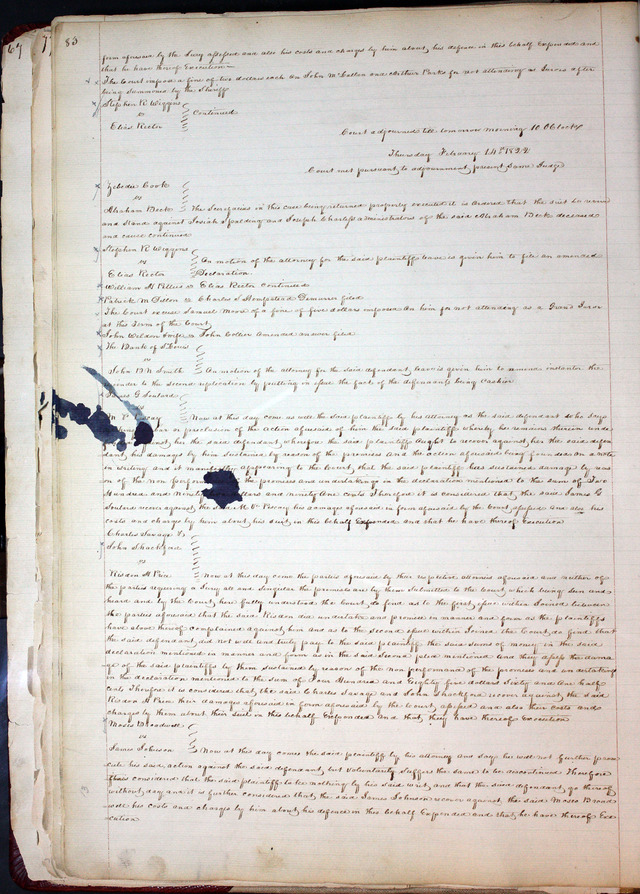 67
83
form aforesaid by the Jury assessed and also his costs and charges by him about his defence in this behalf Expended and
that he have thereof Execution
The Court impose a fine of two dollars each on John McCollen and Arthur for not attending as Jurors after
being summoned by the Sheriff
Stephen R Wiggins
vs Continued
Elias Rector
Court adjourned till tomorrow morning 10 O'Clock
Thursday February 14th 1822
Court met pursuant to adjournment, present Same Judge
Zebedee Cook
vs
Abraham Beck The Scirefacias in this case being returned properly executed it is ordered that the suit be revived
and stand against Josiah Spalding and Joseph Charless administrators of the said Abraham Beck deceased
and cause continued
Stephen R Wiggins
vs On motion of the attorney for the said plaintiff leave is given him to file an amended
Elias Rector Declaration
William H vs Elias Rector continued
Patrick M Dillon vs Charles S Hempstead Demurrer filed
The Court excuse Samuel Moore of a fine of five dollars imposed on him for not attending as a Grand Juror
at this Term of the Court
John Weldon vs John Collier Amended answer filed
The Bank of St Louis
vs
John B N Smith On motion of the attorney for the said defendant, leave is given him to amend instanter the
rejoinder to the second replication by putting in issue the fact of the defendants being Cashier
James G Soulard
vs
M P Now at this day come as well the said plaintiff by his Attorney as the said defendant who says
nothing in or preclusion of the action aforesaid of him the said plaintiff whereby he remains therein
against her the said defendant, wherefore the said plaintiff ought to recover against her the said defen
dant, his damages by him sustained by reason of the premises and the action aforesaid being founded on a note
in writing and it manifestly appearing to the Court, that the said plaintiff has sustained damage by reas
on of the non performance of the promises and undertakings in the declaration mentioned to the sum of Two
Hundred and Ninety dollars and ninety One cents Therefore it is considered that the said James G
Soulard recover against the said M P his damages aforesaid in form aforesaid by the Court assessed and also his
costs and charges by him about his suit in this behalf Expended and that he have thereof Execution
Charles Savage &
John Shackford
vs
Risdon H Price Now at this day come the parties aforesaid by their respective attornies aforesaid and neither of
the parties requiring a Jury all and Singular the premises are by them Submitted to the Court which being seen and
heard and by the Court here fully understood the Court do find as to the first issue within Joined between
the parties aforesaid that the said Risdon did undertake and promise in manner and form as the plaintiffs
have above thereof complained against him and as to the Second issue within Joined the Court do find that
the said defendant, did not well and truly pay to the said plaintiffs the several sums of money in the said
declaration mentioned in manner and form as in the said second plea mentioned and they assess the dama
ge of the said plaintiffs by them Sustained by reason of the non performance of the promises and undertakings
in the declaration mentioned to the Sum of Four Hundred and Eighty five dollars Sixty and One half
cents Therefore it is considered that the said Charles Savage and John Shackford recover against the said
Risdon H Price their damages aforesaid in form aforesaid by the Court assessed and also their costs and
charges by them about their Suit in this behalf Expended and that they have thereof Execution
Moses Broadwell
vs
James Johnson Now at this day comes the said plaintiff by his attorney and says he will not further prose
cute his said action against the said defendant but voluntarily suffers the same to be discontinued Therefore
it is considered that the said plaintiff take nothing by his said writ, and that the said defendant, go thereof
without day and it is further considered that the said James Johnson recover against the said Moses Broad
well his costs and charges by him about his defence in this behalf Expended and that he have thereof Exe
cution